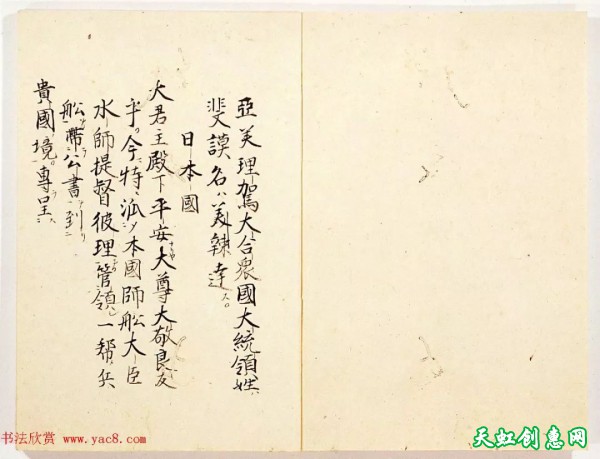 亞美理駕大合衆國大統領姓ハ
斐謨名ハ美辣達ス。
日本國
大君主殿下平安大尊大敬良友
乎今特ニ泒シ本國師船大臣
水師提督彼理管領一幇兵
船帶公書到リ
貴國境專呈ス
书法欣赏 www.yac8.com
天虹创惠网